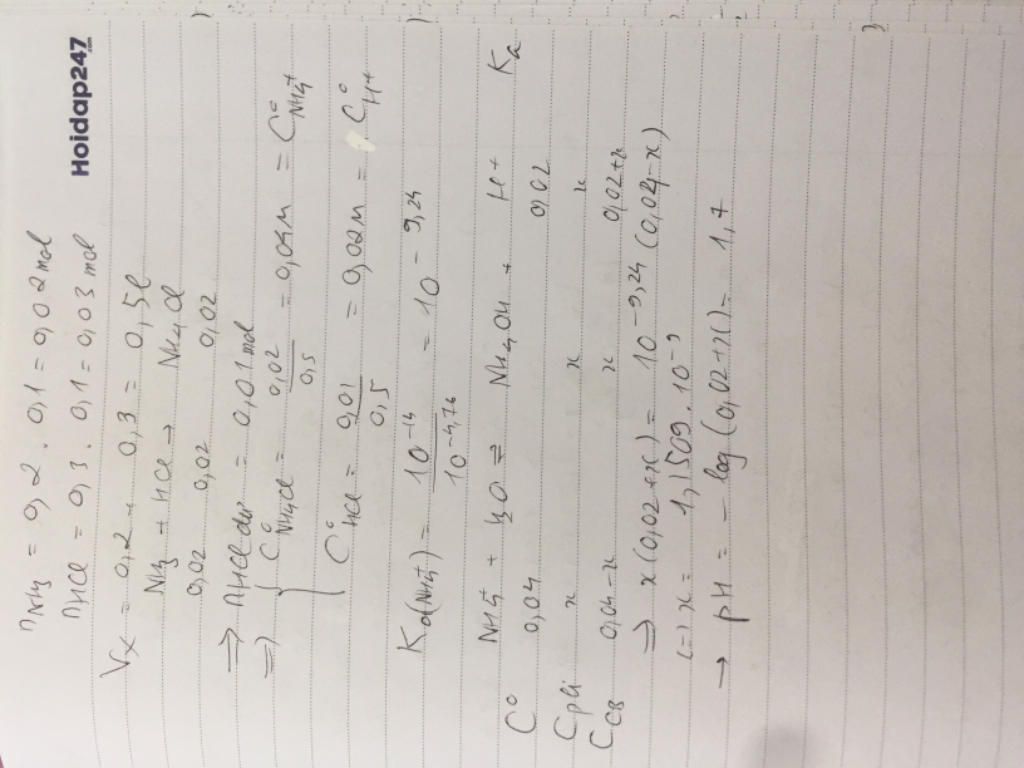 Hoidap247
.com
nNH3 = 0,2 . 0,1 = 0,02 mol
nHCl = 0,3 . 0,1 = 0,03 mol
Vx = 0,2 + 0,3 = 0,5l
NH3 + HCl → NH4Cl
0,02 0,02 0,02
=> nHCl dư = 0,01 mol
=> { C°NH4Cl = 0,02/0,5 = 0,04M = C°NH4+
C°HCl = 0,01/0,5 = 0,02M = C°H+
Ka(NH4+) = 10^-14/10^-4,76 = 10^-9,24
NH4+ + H2O ⇌ NH4OH + H+ Ka
C° 0,04 0,02
Cpli x x x
CCB 0,04-x x 0,02+x
=> x(0,02+x) = 10^-9,24 (0,04-x)
(=) x = 1,1509.10^-9
→ pH = -log(0,02+x) = 1,7